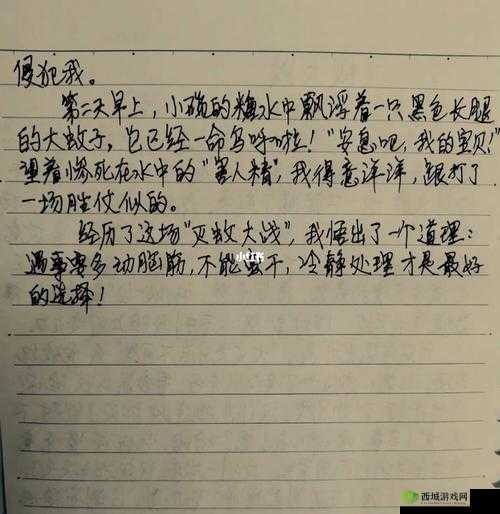 侵犯我。
第二天早上，小碗的糖水中飘浮着一只黑色长腿
的大蚊子，它已经一命乌呼啦！"安息吧，我的宝贝！"
望着惨死在水中的"害人精"，我得意洋洋，跟打了
一场胜仗似的。
经历了这场"灭蚊大战"，我悟出了一个道理：
遇事要多动脑筋，不能蛮干，冷静处理才是最好
的选择！
小红书
西城游戏网